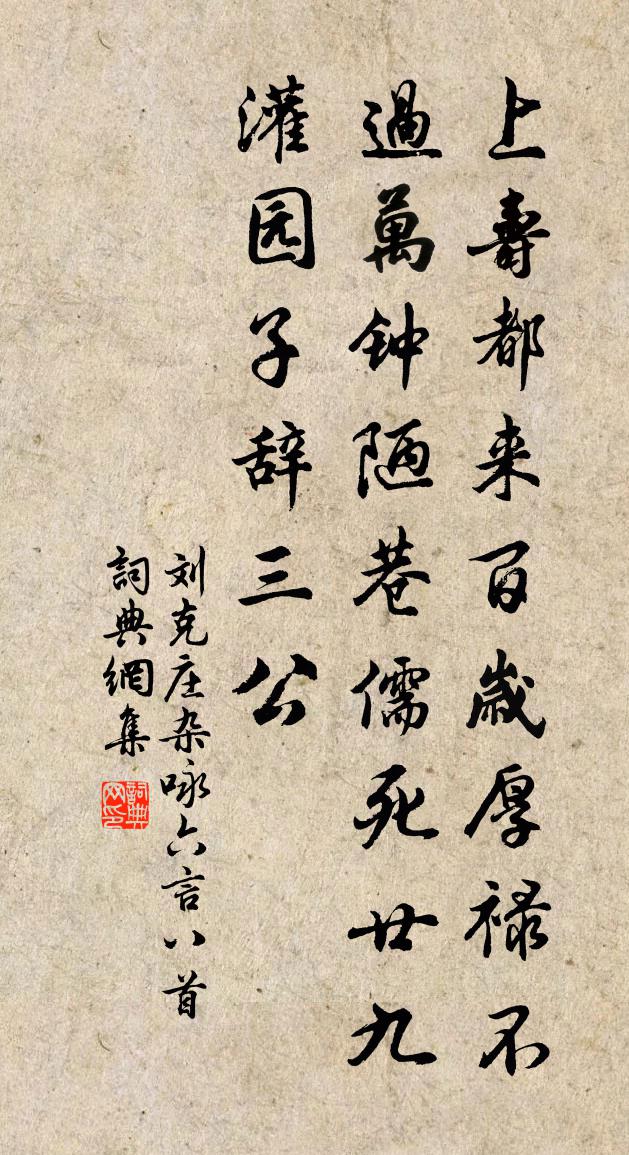 上壽都来百歳厚禄不
過萬钟陋巷儒死廿九
灌园子辞三公
刘克庄杂咏六言八首
詞典網集
詞典
网印